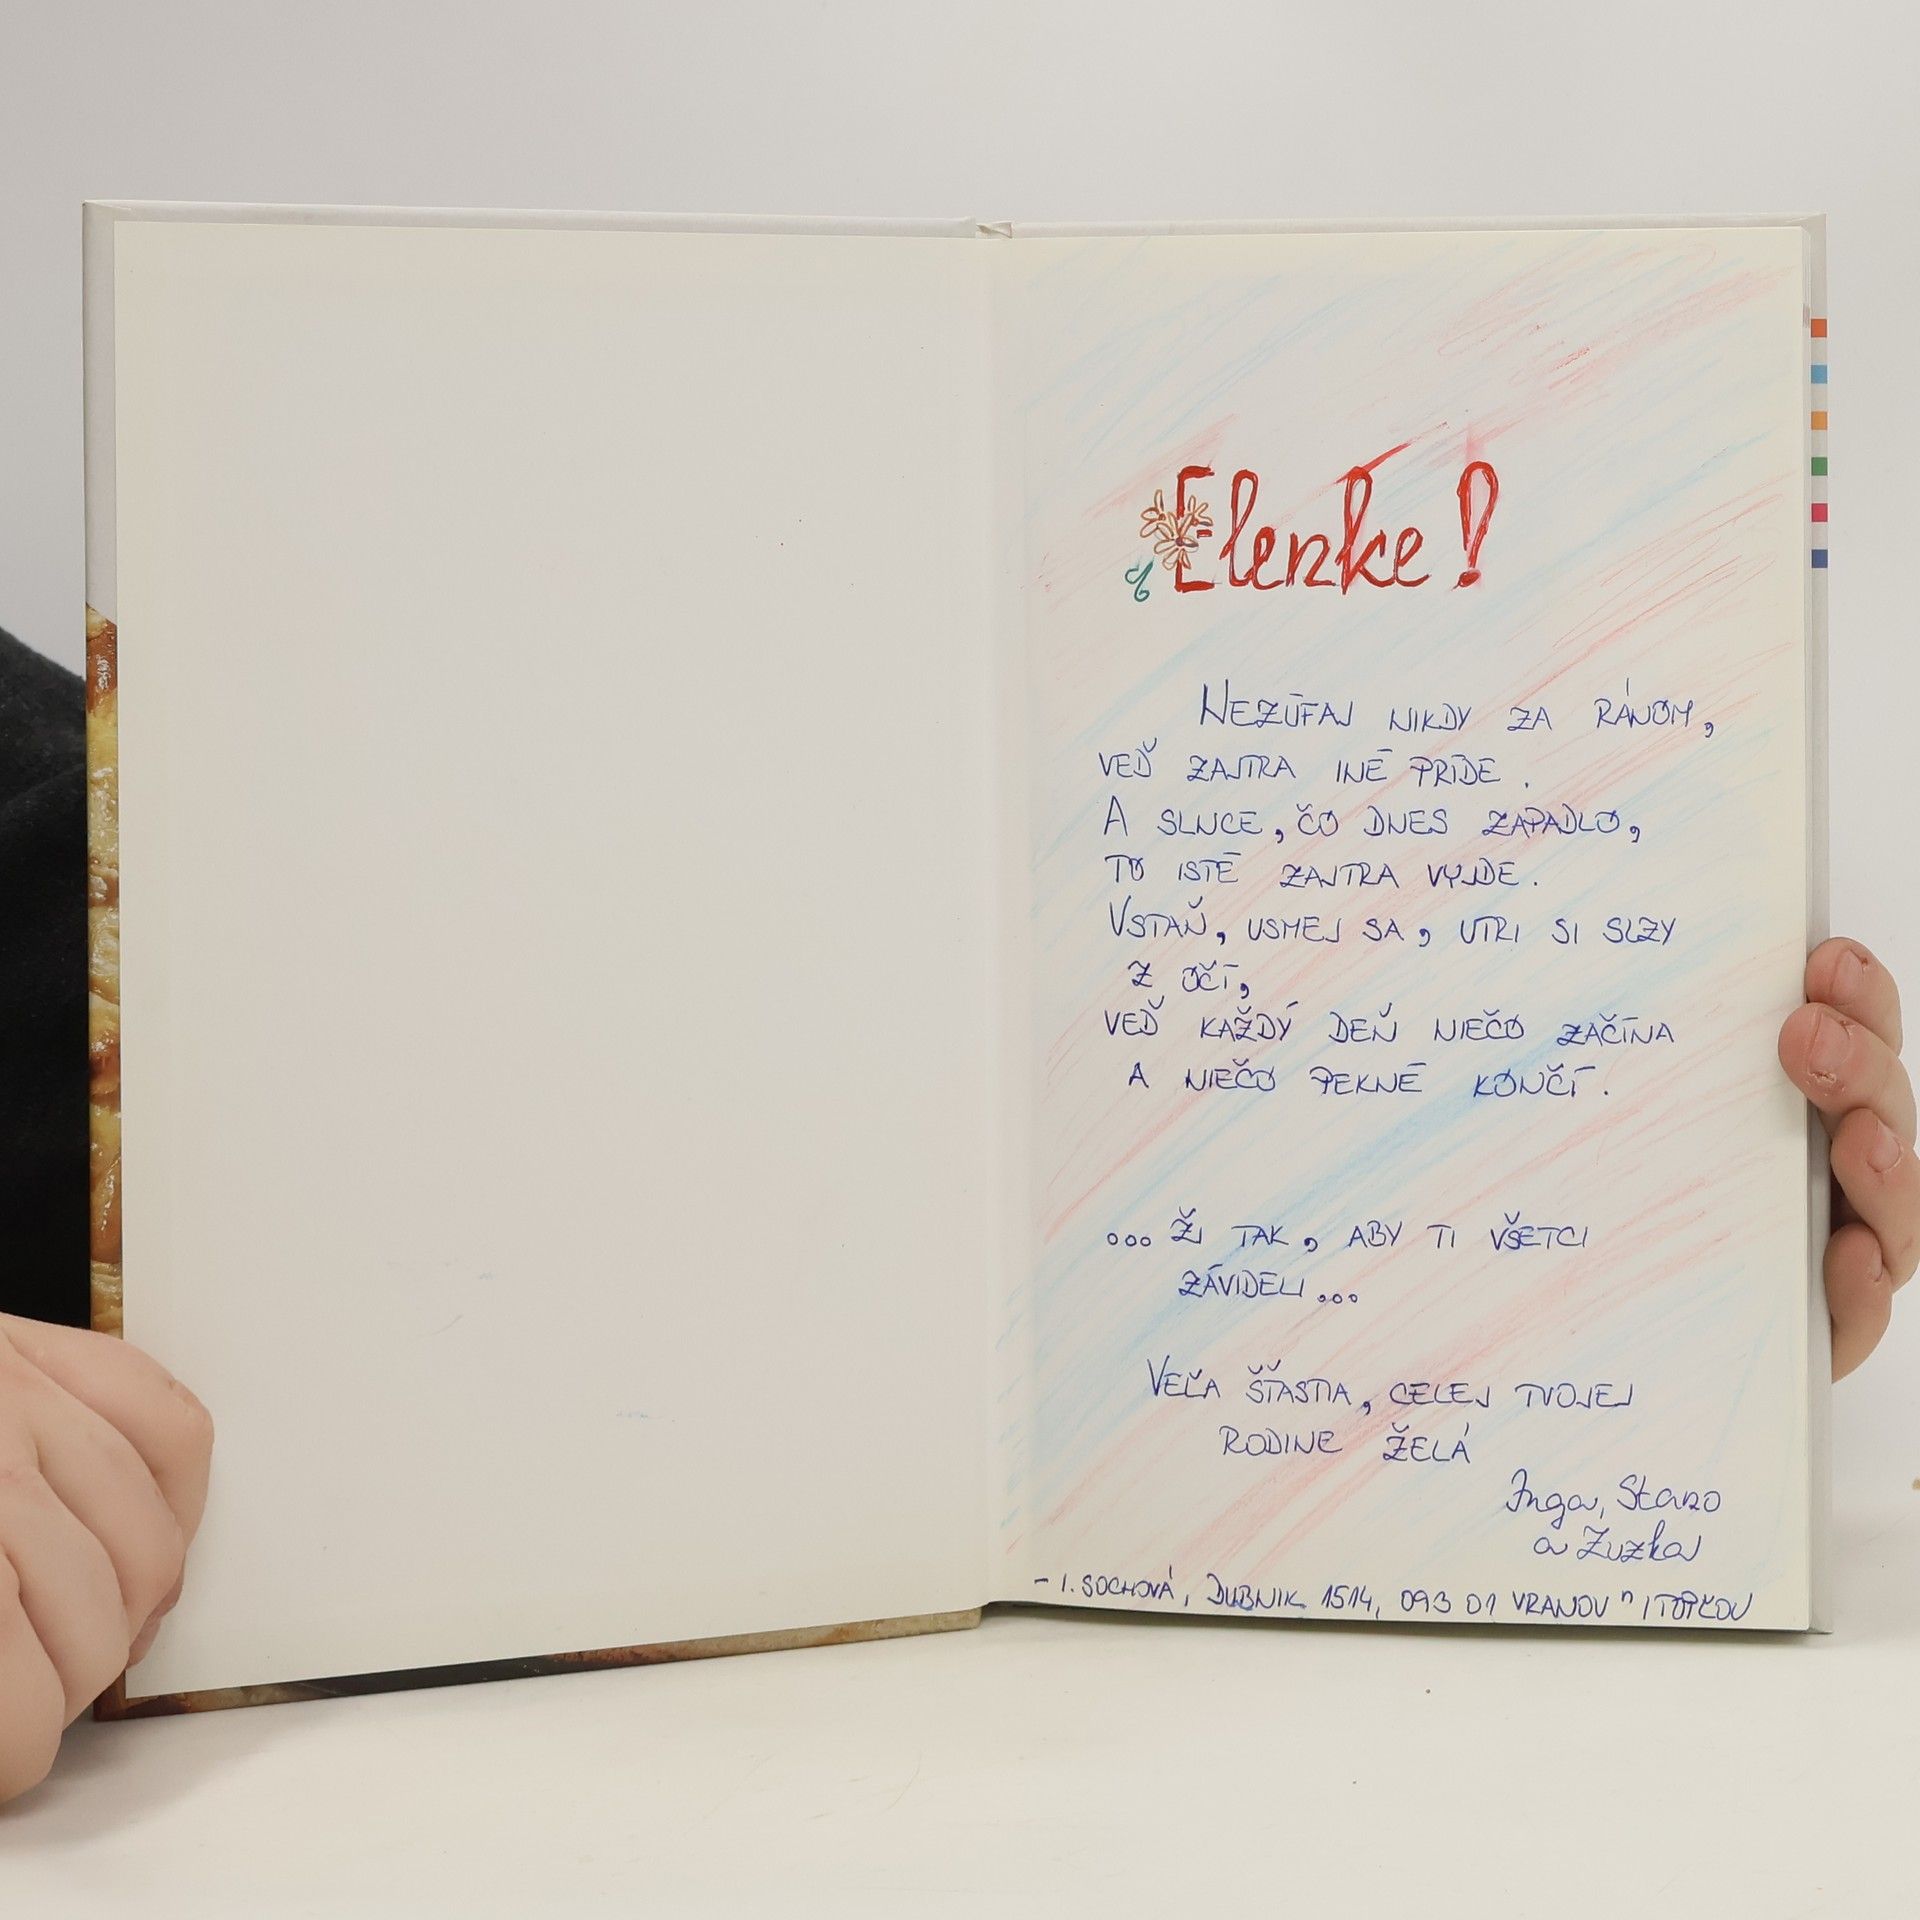 Elenke!
NEZÚFAJ NIKDY ZA RÁNOM,
VEĎ ZAJTRA INÉ PRÍDE.
A SLNCE, ČO DNES ZAPADLO,
TO ISTÉ ZAJTRA VYJDE.
VSTAŇ, USMEJ SA, UTRI SI SLZY
Z OČÍ,
VEĎ KAŽDÝ DEŇ NIEČO ZAČÍNA
A NIEČO PEKNÉ KONČÍ.
... ŽI TAK, ABY TI VŠETCI
ZÁVIDELI...
VEĽA ŠŤASTIA, CELEJ TVOJEJ
RODINE ŽELÁ
Inga, Stano
a Zuzka
- I. SOCHOVÁ, DUBNIK 1514, 093 01 VRANOV n/TOPĽOU